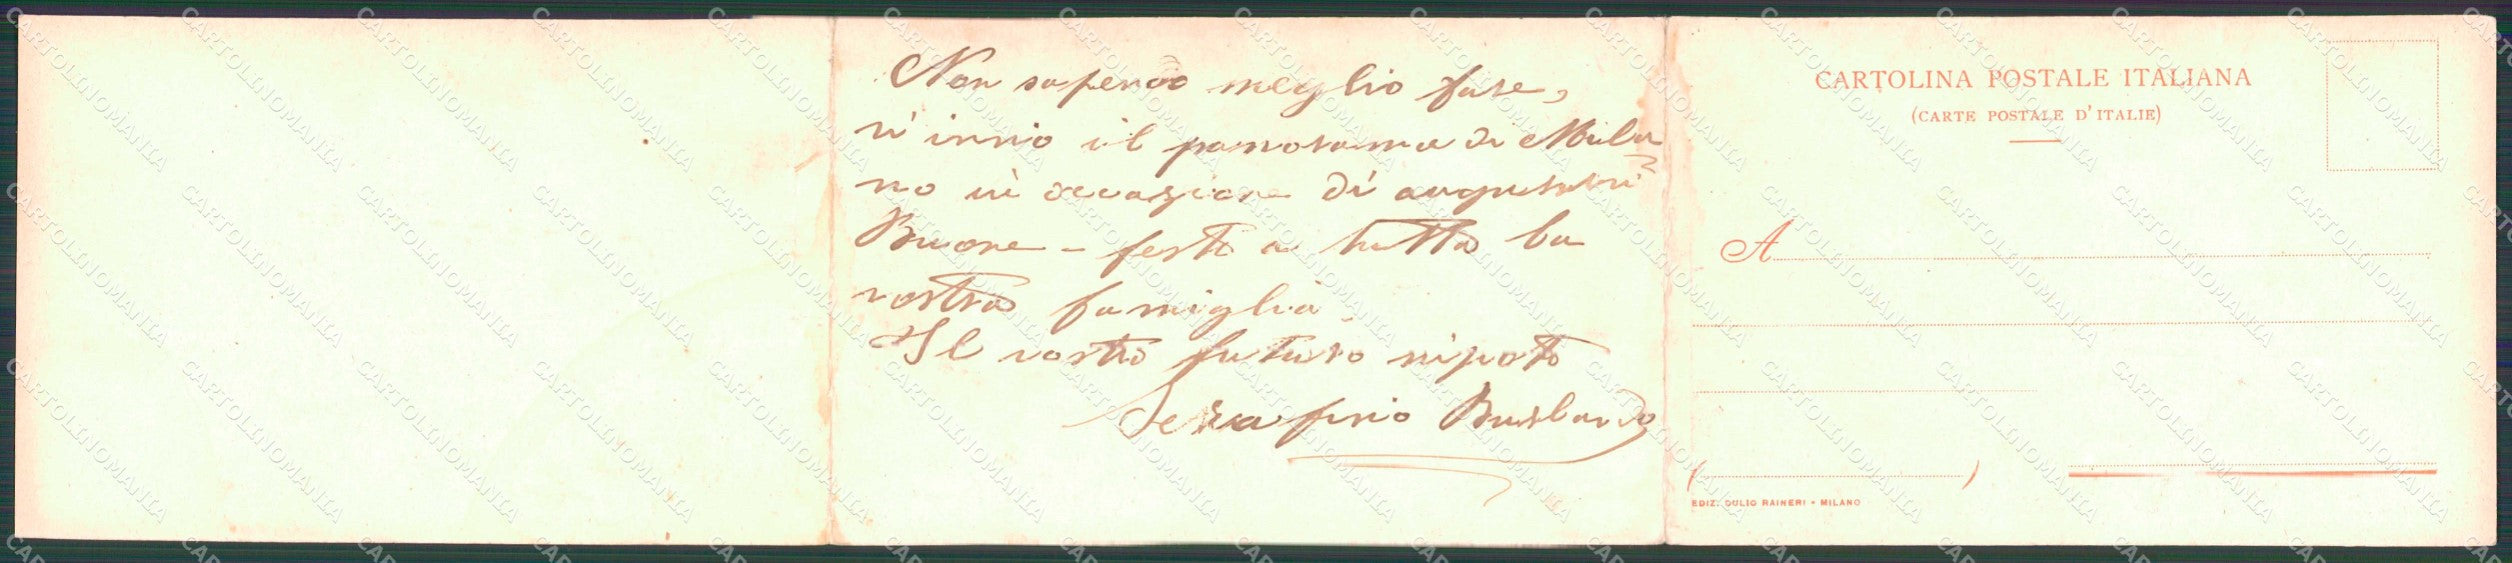 Non sapendo meglio fare,
vi invio il panorama di Mila-
no in occasione di augurarvi
Buone - feste a tutta la
vostra famiglia.
Il vostro futuro nipote
Serafino
CARTOLINA POSTALE ITALIANA
(CARTE POSTALE D'ITALIE)
A
EDIZ. DULIO RAINERI - MILANO
CARTOLINOMANIA